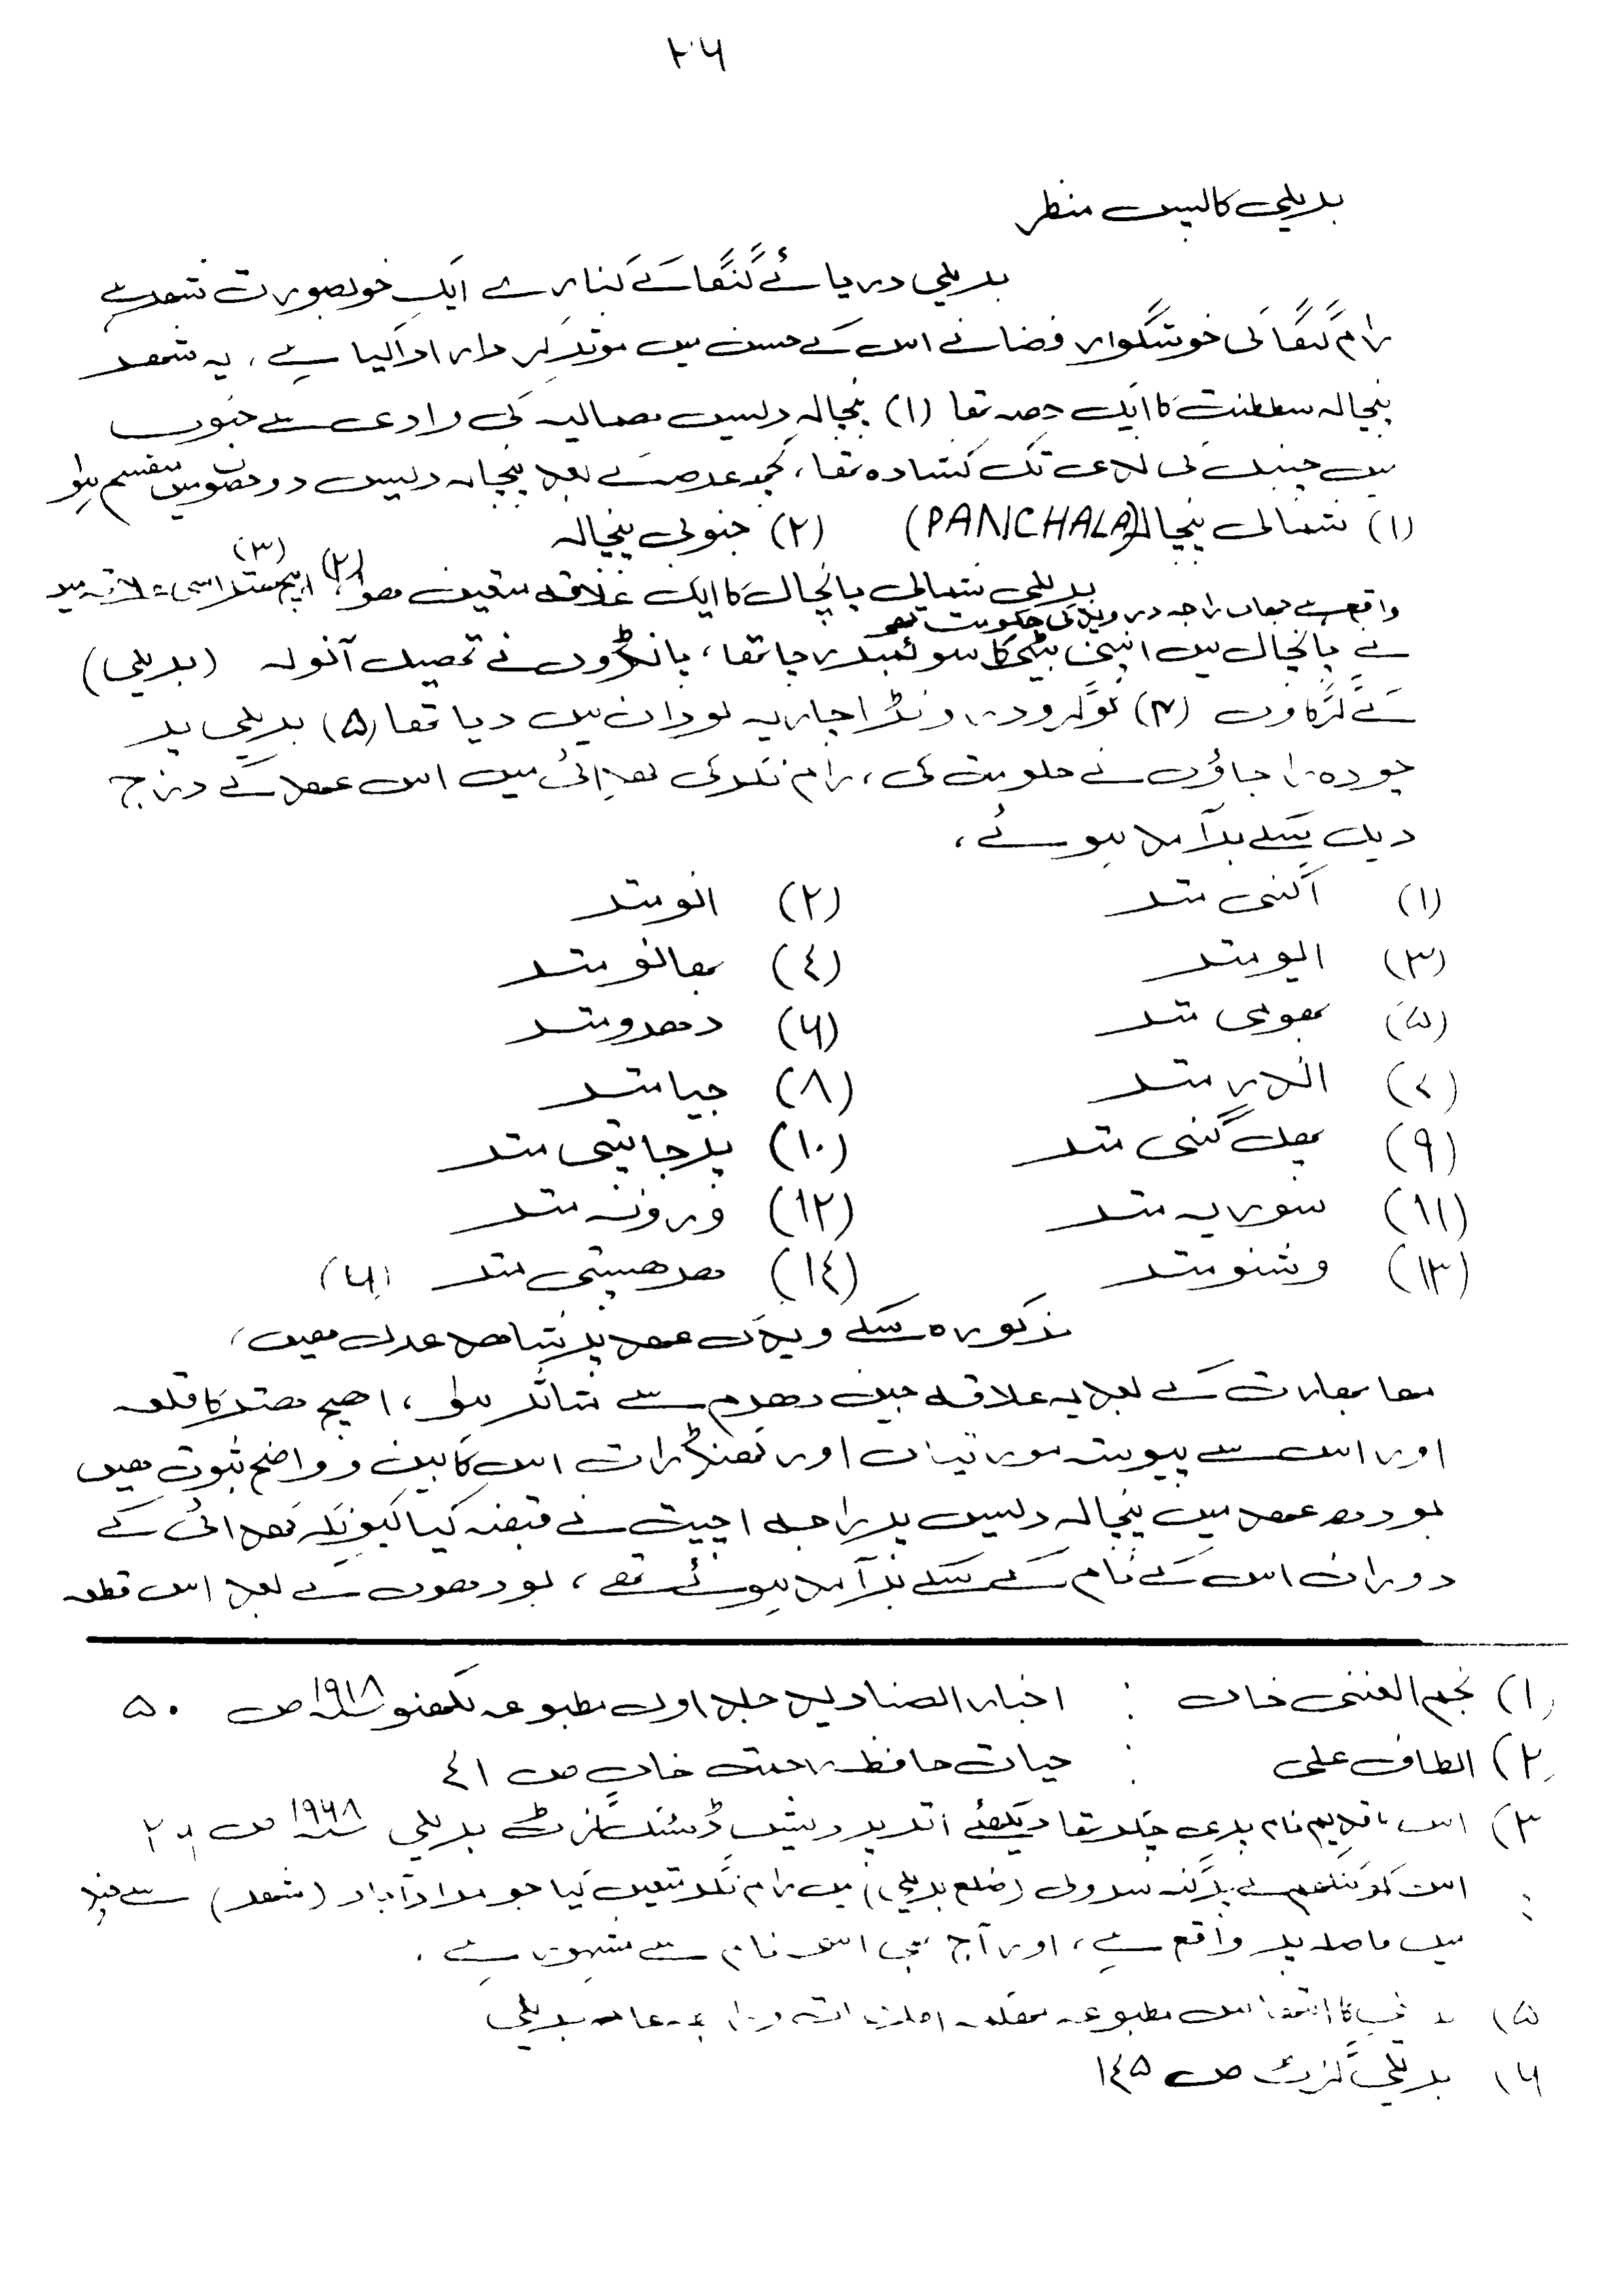 ۲۶
بریلی کا پس منظر
بریلی دریائے گنگا کے کنارے ایک خوبصورت شہر ہے
رام گنگا کی خوشگوار فضا نے اس کے حسن میں موثر کردار ادا کیا ہے، یہ شہر
پنچالہ سلطنت کا ایک حصہ تھا (۱) پنچالہ دلیس ہمالیہ کی وادی سے جنوب
میں چنبل کی ندی تک کشادہ تھا، کچھ عرصے بعد پنچالہ دیس دو حصوں میں منقسم ہوا
(۱) شمالی پنچالہ (PANCHALA) (۲) جنوبی پنچالہ
بریلی شمالی پانچال کا ایک علاقہ متعین ہوا، (۲) اہیچھتر (۳) اسی علاقہ میں
واقع ہے جہاں راجہ دروپد کی حکومت تھی
نے پانچال میں اپنی بیٹی کا سوئمبر رچا تھا، پانڈوں نے تحصیل آنولہ (بریلی)
کے گرگاوں (۴) کو گرو درونڑاچاریہ کو دان میں دیا تھا (۵) بریلی پر
چودہ راجاؤں نے حکومت کی، رام نگر کی کھدائی میں اس عہد کے درج
ذیل سکے برآمد ہوئے،
(۱) اگنی متر (۲) انو متر
(۳) ایو متر (٤) بھانو متر
(۵) بھومی متر (۶) دھرو متر
(۷) اندر متر (۸) جیا متر
(۹) پھل گنی متر (۱۰) پرجاپتی متر
(۱۱) سوریہ متر (۱۲) ورونہ متر
(۱۳) وشنو متر (۱٤) برھسپتی متر (۶)
مذکورہ سکے ویدک عہد پر شاھد عدل ھیں،
مہا بھارت کے بعد یہ علاقہ جین دھرم سے متاثر ہوا، اھیچھتر کا قلعہ
اور اس سے پیوستہ مورتیاں اور کھنڈرات اس کا بین و واضح ثبوت ھیں
بودھ عہد میں پنچالہ دلیس پر راجہ اچیت نے قبضہ کیا کیونکہ کھدائی کے
دوران اس کے نام کے سکے برآمد ہوئے تھے، بودھوں کے بعد اس قطعہ
(۱) نجم الغنی خاں : اخبار الصنادید جلد اول مطبوعہ لکھنو ۱۹۱۸ ص ۵۰
(۲) الطاف علی : حیات حافظ رحمت خاں ص ٤۱
(۳) اس کا قدیم نام چھتر تھا دیکھئے اتر پردیش ڈسٹرکٹ گزٹ بریلی ۱۹۶۸ ص
: اس کو کننگھم نے پرگنہ سرولی (ضلع بریلی) میں رام نگر متعین کیا جو مرادآباد (شہر) سے چند
میل فاصلہ پر واقع ہے، اور آج بھی اسی نام سے مشہور ہے.
(۵) کا اتہاس مطبوعہ بریلی
(۶) بریلی گزٹ ص ۱٤۵